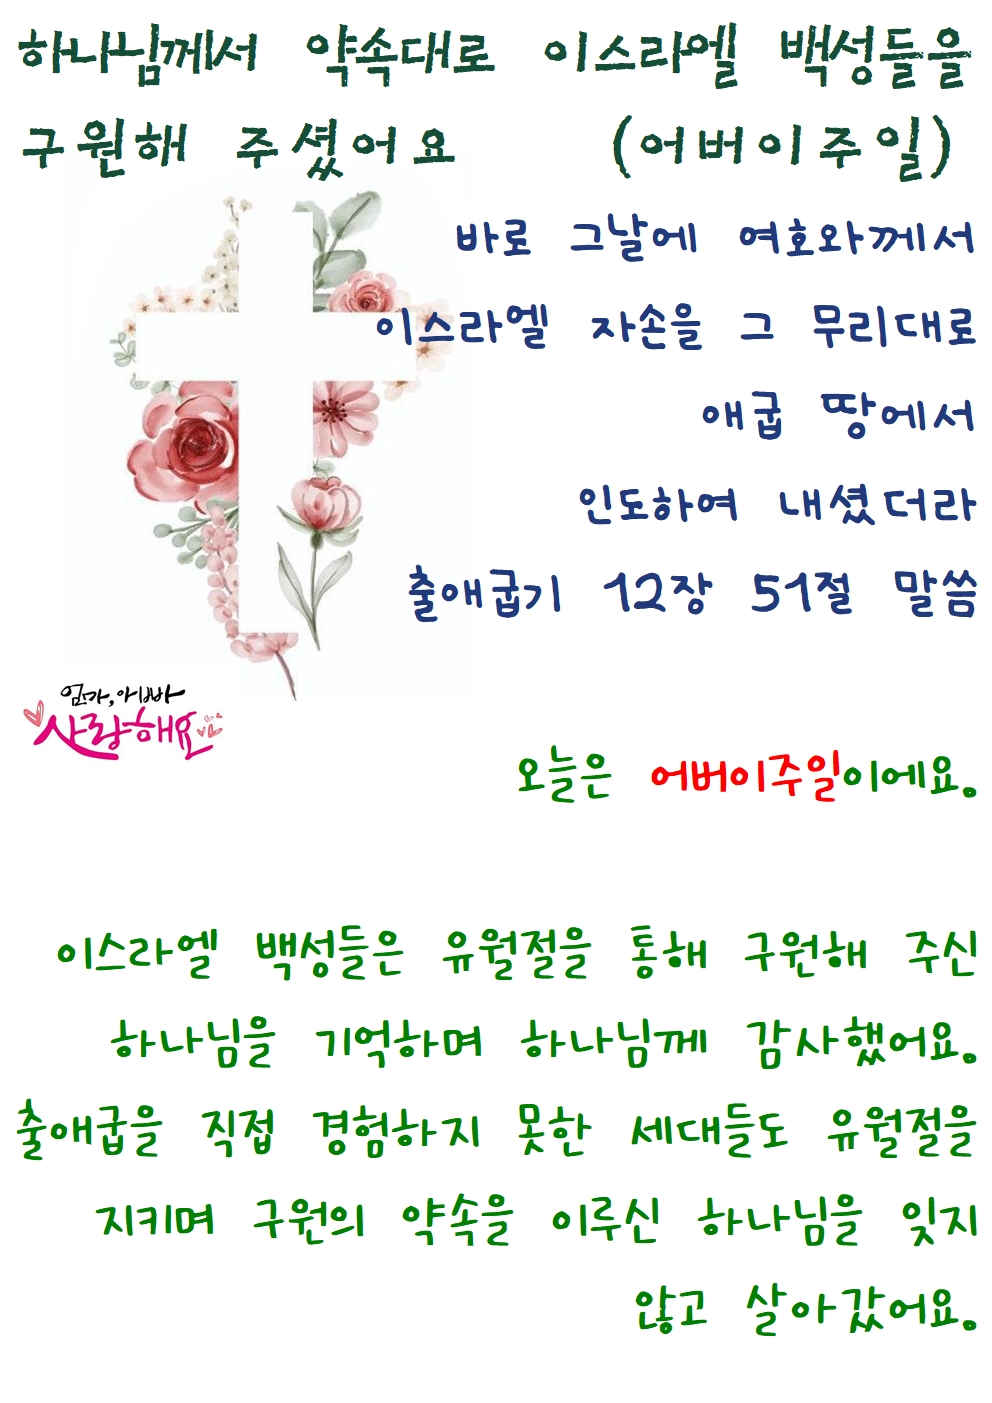 하나님께서 약속대로 이스라엘 백성들을
구원해 주셨어요 (어버이주일)
바로 그날에 여호와께서
이스라엘 자손을 그 무리대로
애굽 땅에서
인도하여 내셨더라
출애굽기 12장 51절 말씀
엄마, 아빠
사랑해요
오늘은 어버이주일이에요.
이스라엘 백성들은 유월절을 통해 구원해 주신
하나님을 기억하며 하나님께 감사했어요.
출애굽을 직접 경험하지 못한 세대들도 유월절을
지키며 구원의 약속을 이루신 하나님을 잊지
않고 살아갔어요.